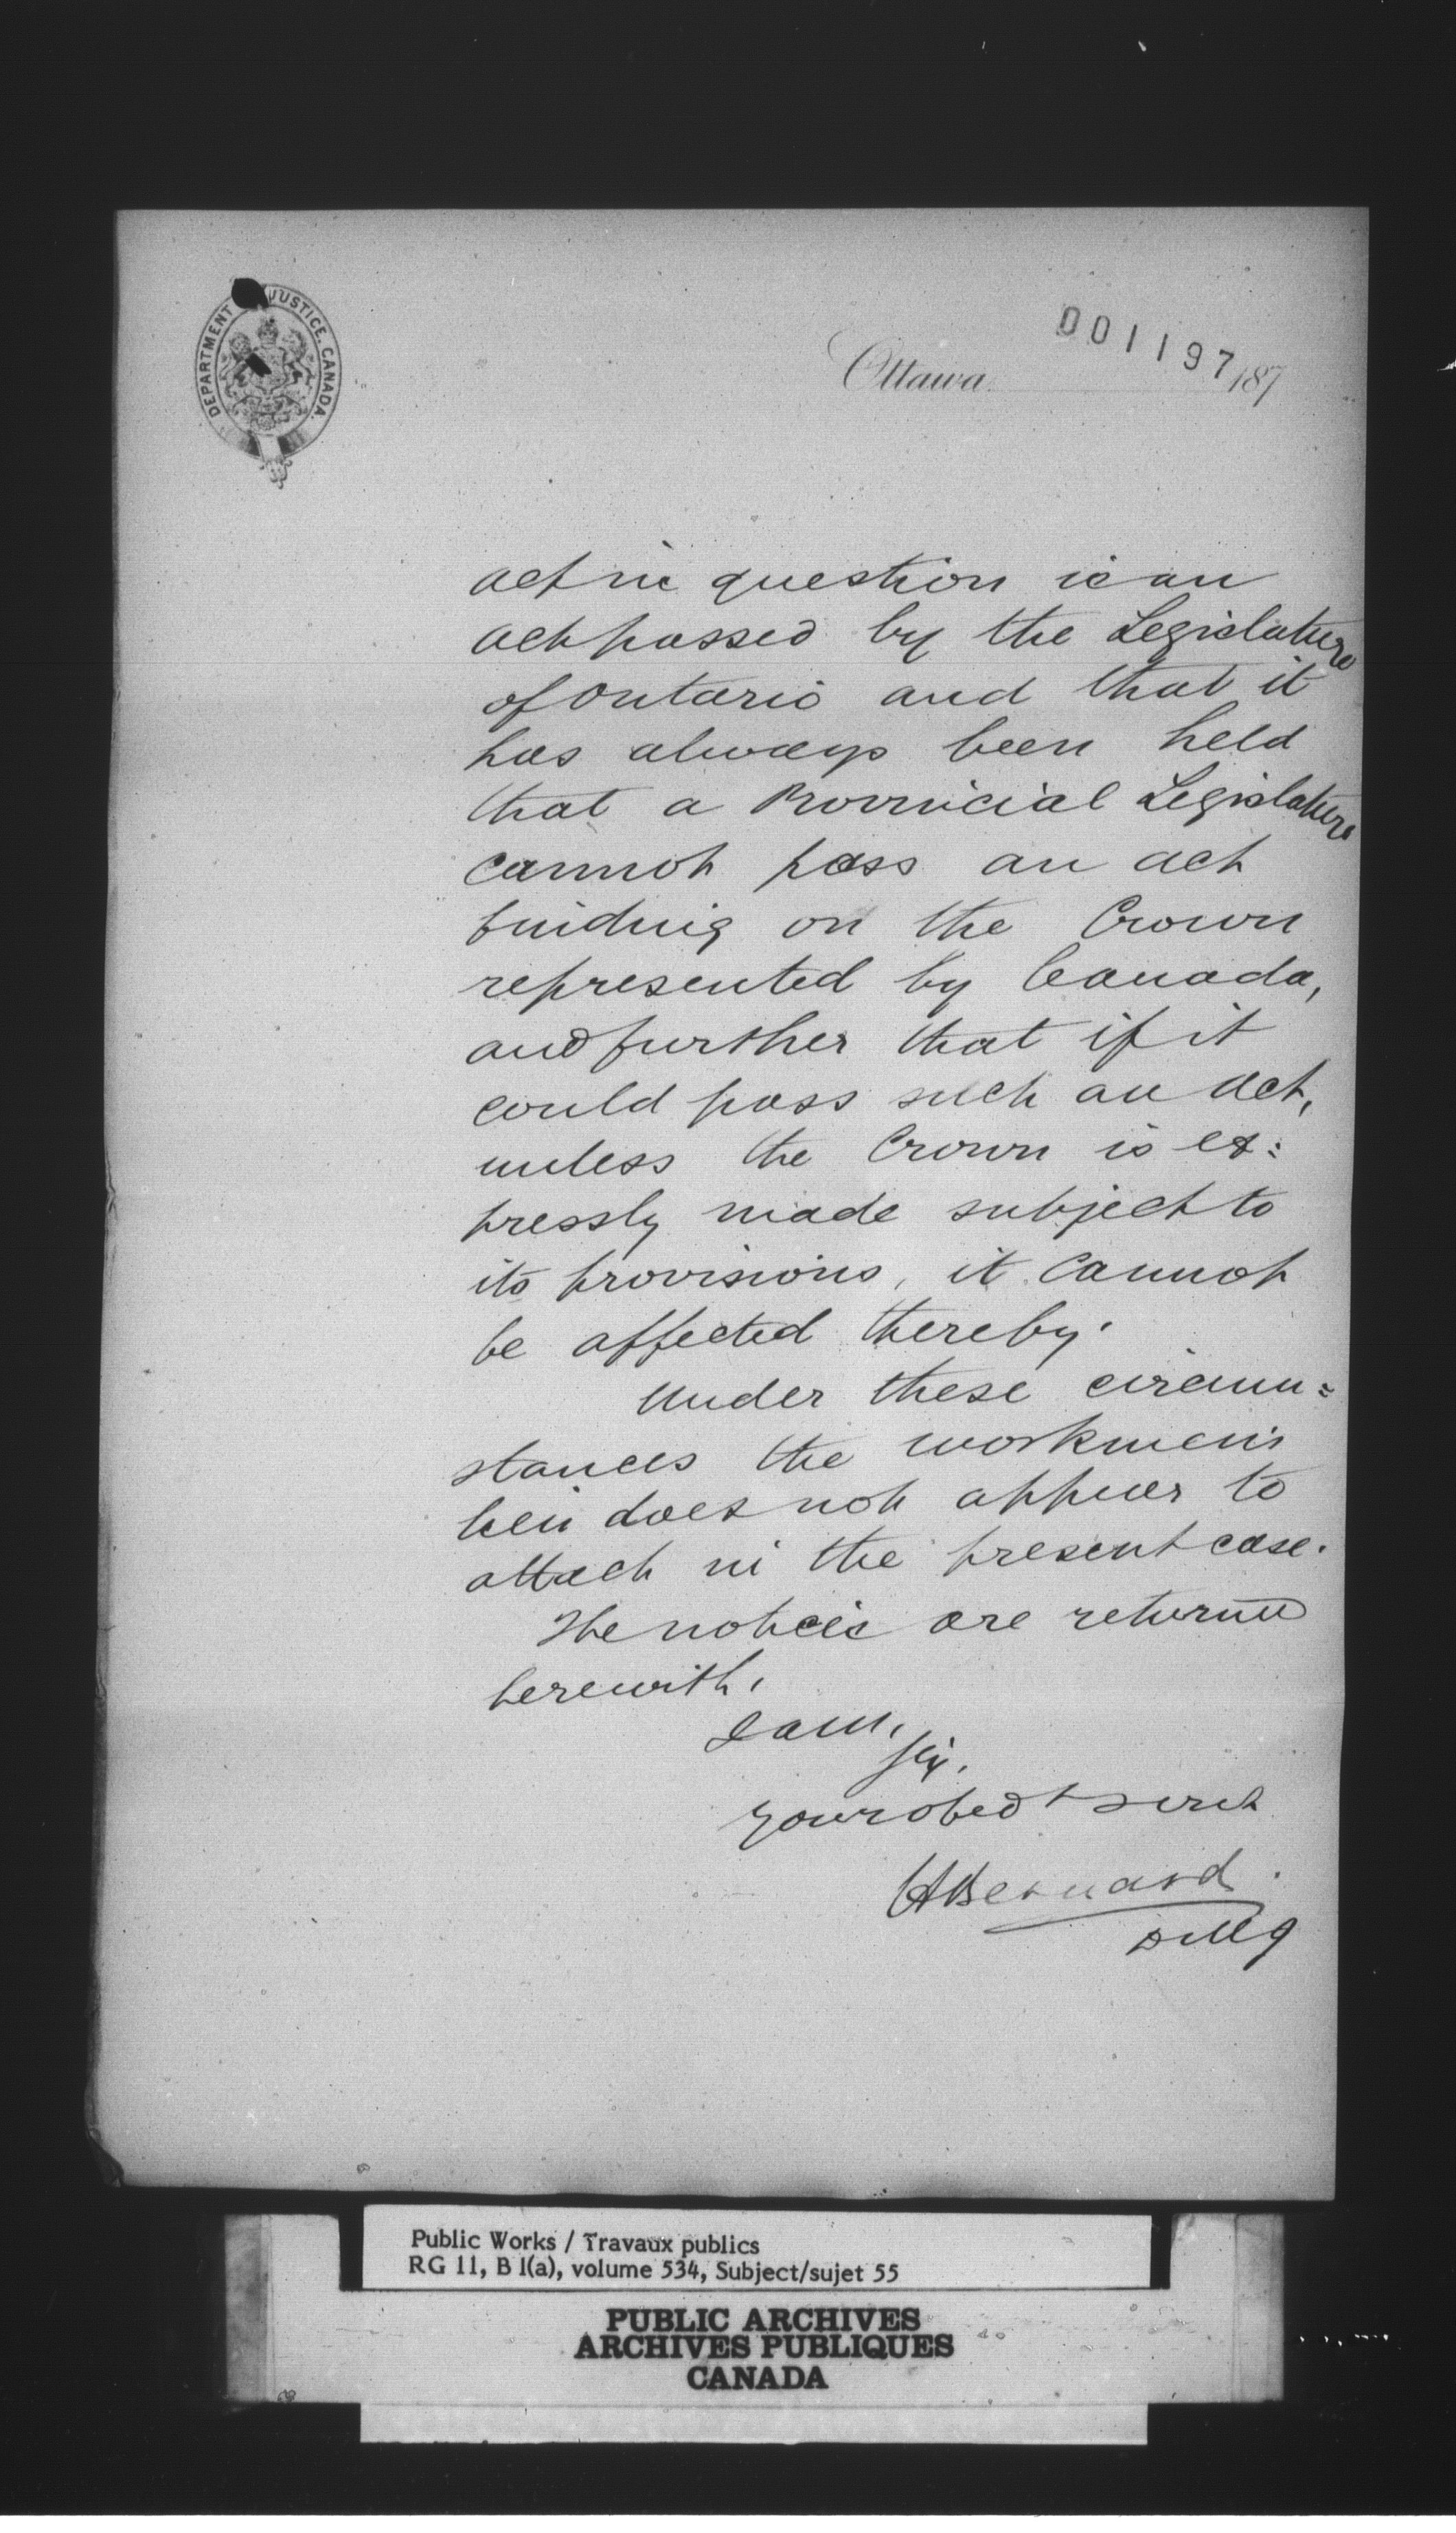 DEPARTMENT JUSTICE, CANADA.
001197
Ottawa 187
act in question is an
act passed by the Legislature
of Ontario and that it
has always been held
that a Provincial Legislature
cannot pass an act
binding on the Crown
represented by Canada,
and further that if it
could pass such an act,
unless the Crown is ex=
pressly made subject to
its provisions, it cannot
be affected thereby.
Under these circum=
stances the workmen's
lien does not appear to
attach in the present case.
The notices are returned
herewith,
I am,
Sir,
your obedt servt
H Bernard.
D M J
Public Works / Travaux publics
RG 11, B 1(a), volume 534, Subject/sujet 55
PUBLIC ARCHIVES
ARCHIVES PUBLIQUES
CANADA